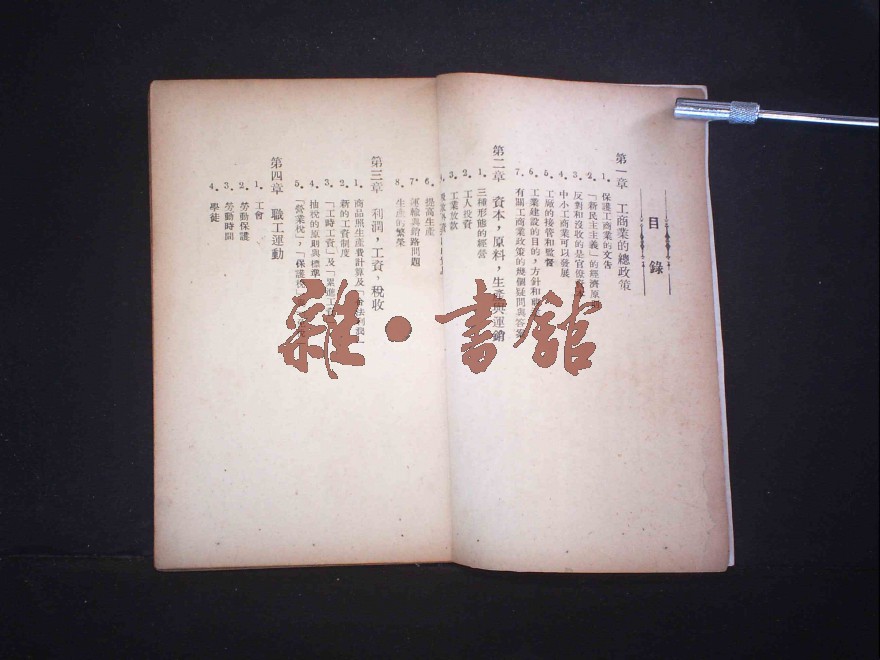 目錄
第一章 工商業的總政策
1. 保護工商業的文告
2. 「新民主主義」的經濟原則
3. 反對和沒收的是官僚資本
4. 中小工商業可以發展
5. 工廠的接管和監督
6. 工業建設的目的,方針和
7. 有關工商業政策的幾個疑問與答案
第二章 資本,原料,生產與運銷
1. 三種形態的經營
2. 工人投資
3. 工業放款
4.
6. 提高生產
7. 運輸與銷路問題
8. 生產的繁榮
第三章 利潤,工資,稅收
1. 商品照生產費計算及「合法利潤」
2. 新的工資制度
3. 「工時工資」及「累進工資」
4. 抽稅的原則與標準
5. 「營業稅」,「保護稅」
第四章 職工運動
1. 工會
2. 勞動保護
3. 勞動時間
4. 學徒
雜·書館